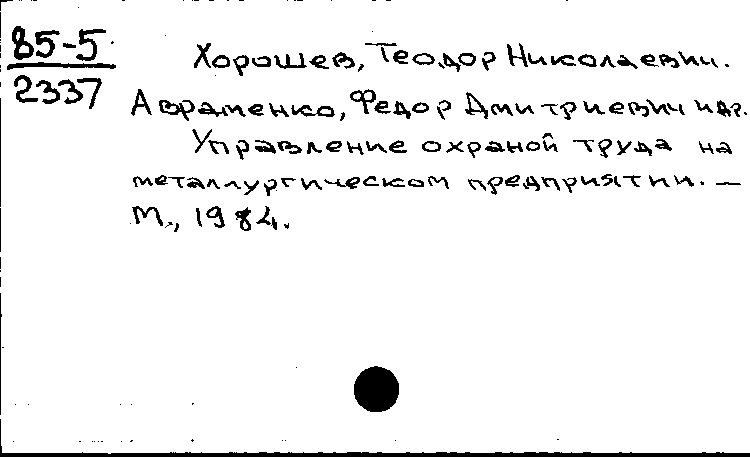 85-5
2337
Хорошев, Теодор Николаевич.
Авраменко, Федор Дмитриевич и др.
Управление охраной труда на
металлургическом предприятии. —
М., 1984.